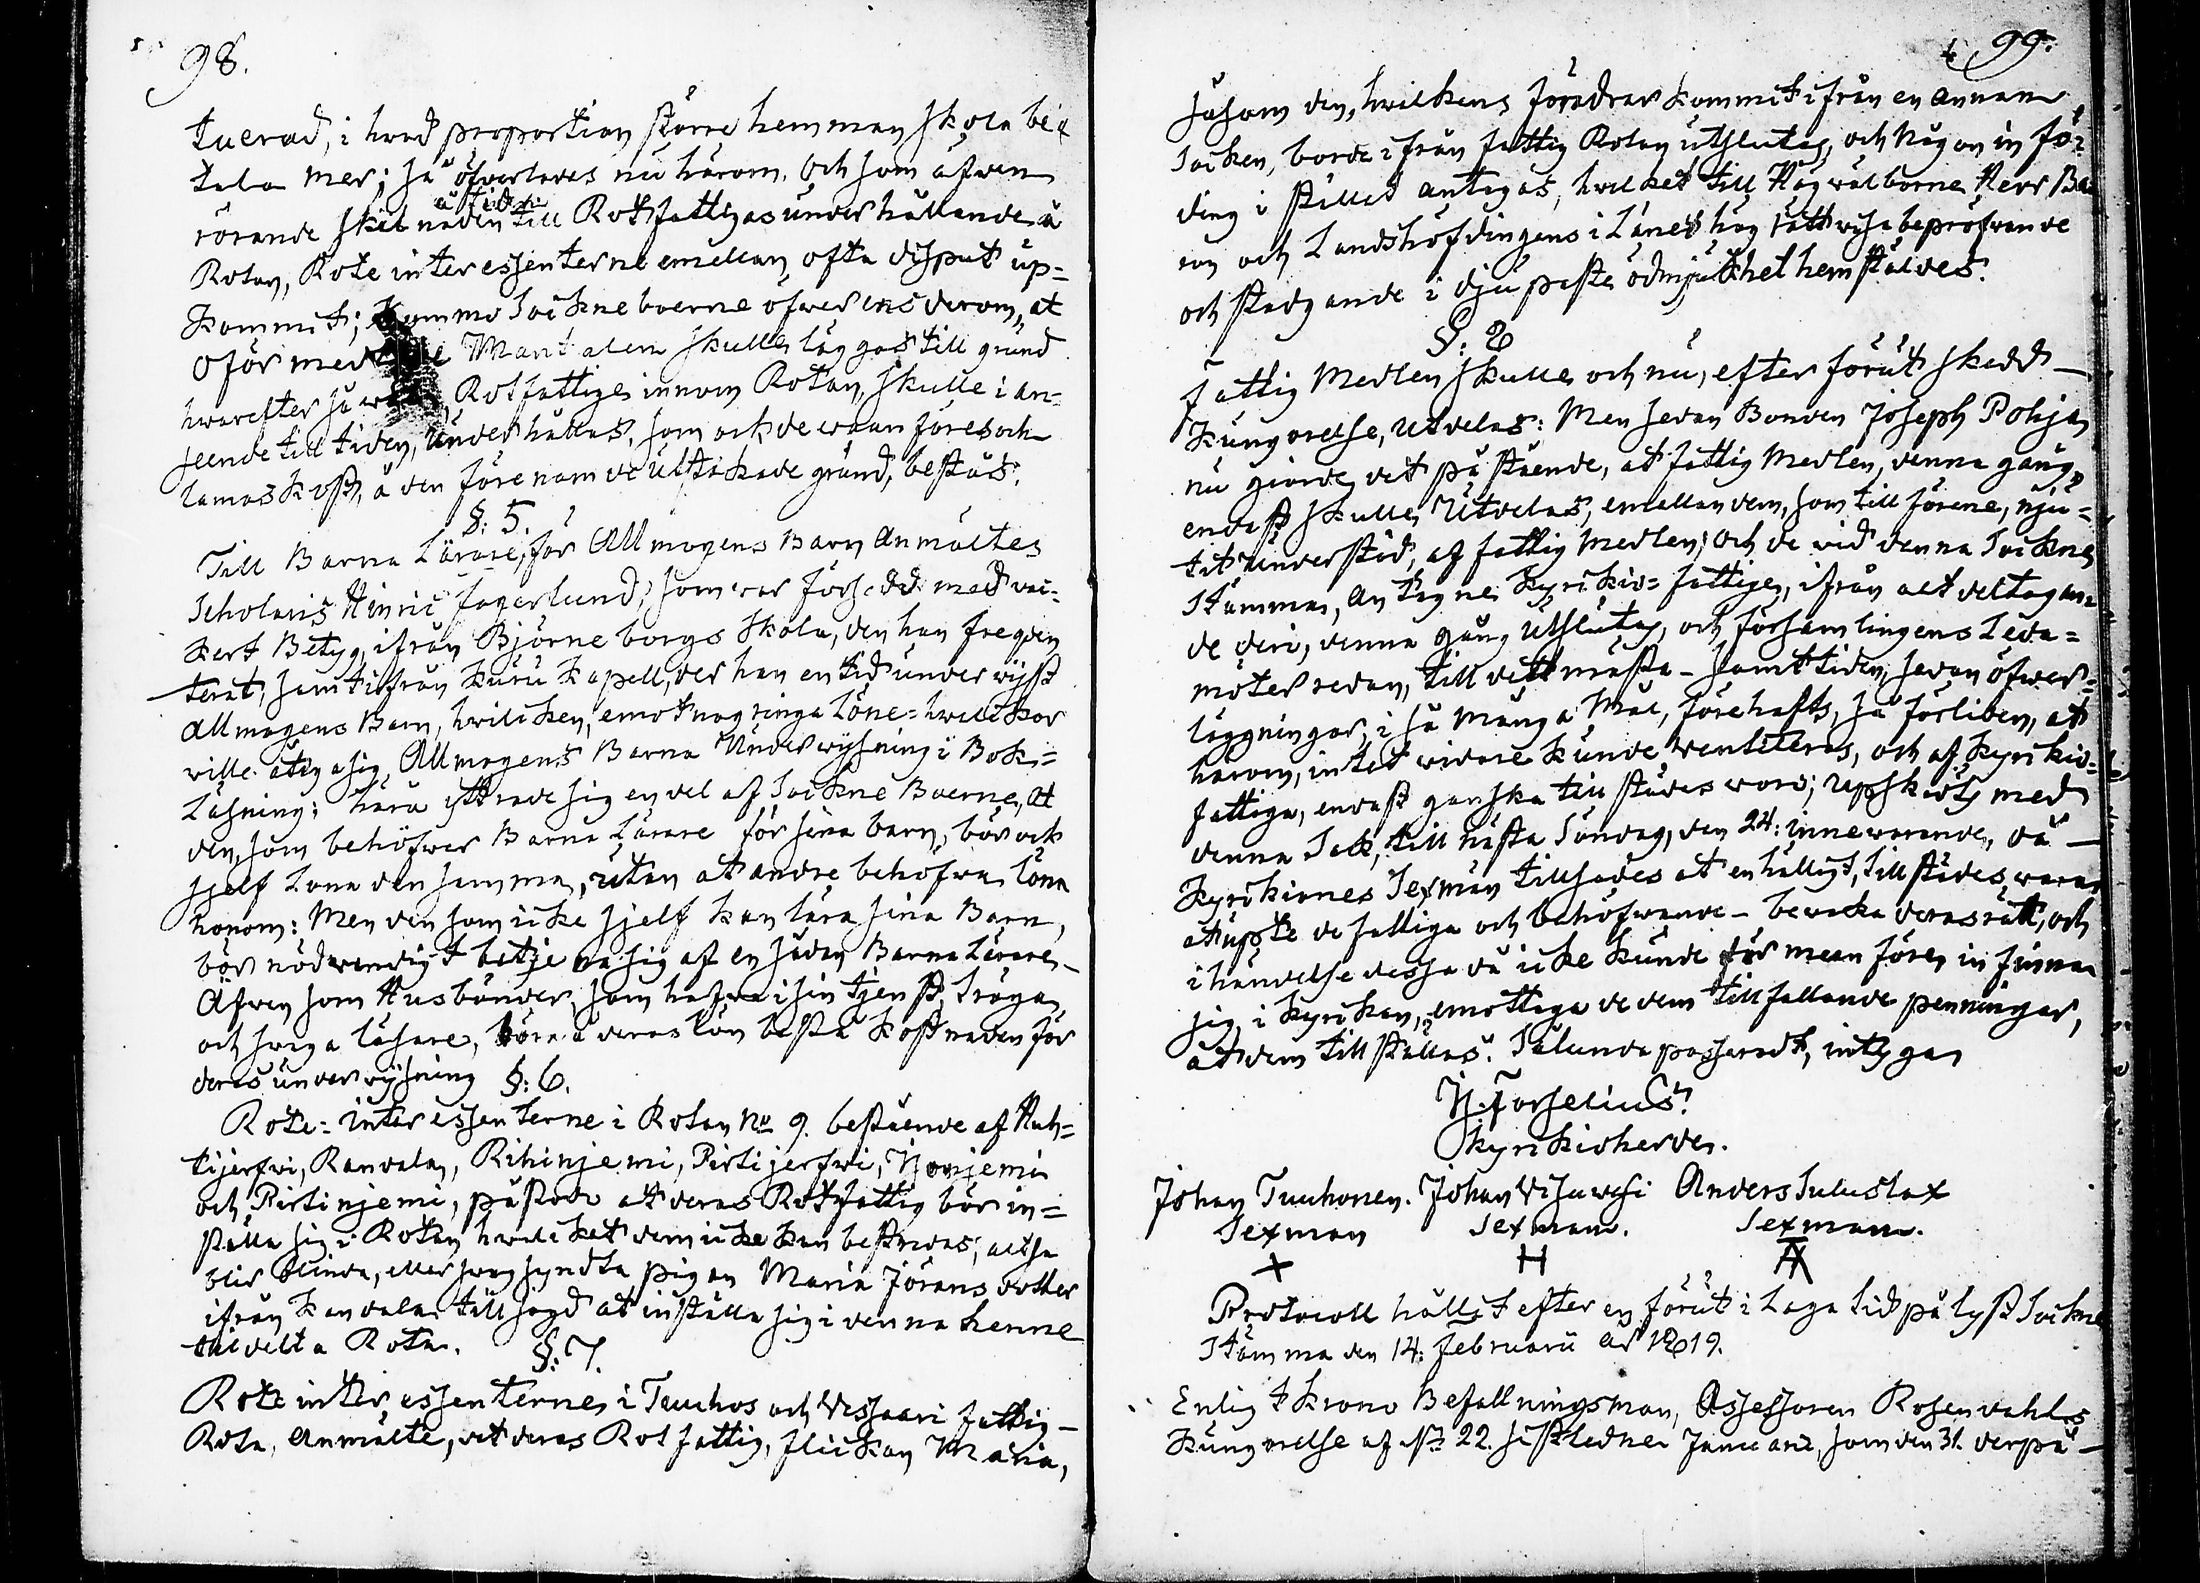 98.
tuerad, i hvad proportion större hemman skola be
tala mer; så öfverlades nu härom. Och som äfven
rörande skilnaden
å tiden
till Rotfattigas underhållande å
Rotan, Rote interessenterne emellan, ofta disput up=
kommit; kommo Sockneboerne öfwer ens derom, at
Mantalen skulle läggas till grund
hwarefter så Rotfattige innom Rotan, skulle i an=
seende till tiden, underhållas, som ock de
kost, å den förenämde utstakade grund, bestås.
§: 5.
Till Barna Lärare, för Allmogens Barn Anmältes
Scholaris Hinric Fagerlund, som var försedd med vac=
kert Betyg, ifrån Björneborgs Skola, den han freqven
terat, samt ifrån Kuru Kapell, der han en tid underwijst
Allmogens Barn, hvilcken, emot nog ringa Löne=hwillkor
wille åtaga sig Allmogens Barna Underwijsning i Bok=
Läsning: härå yttrade sig en del af Sockne Boerne, At
den, som behöfwer Barna Lärare för sina barn, bör ock
sjelf Löna den samma, utan at andre behöfwa löna
honom: Men den som icke sjelf kan lära sina Barn,
bör nödwendigt betjena sig af en sådan Barna Lärare
Äfwen som Husbönder, som hafwa i sin tjenst, tröga
och swaga läsare, böra å deras lön bestå kostnaden för
deras underwijsning §: 6.
Rote=interessenterne i Rotan No 9. bestående af Auh=
tijerfwi, Randala, Rihinjemi, Pirtijerfwi,
och Pirtinjemi, påstodo at deras Rotfattig bör in=
ställa sig i Rotan hwilcket dem icke kan bestridas; altså
blir blinda, eller swagsyndta pigan Maria Jörans dotter
ifrån Kandala, tillsagd at inställa sig i denna henne
tilldelta Rota. §: 7.
Rote interessenterne, i Tuuhos och Visaari fattig=
Rota, Anmälte, det deras Rotfattig, flickan Maria,
99.
såsom den, hvilkens Föräldrar kommit ifrån en annan
Socken, borde ifrån fattig Rotan utslutas, och någon in fö=
ding i stället antagas, hvilket till Högwälborne Herr Ba
ron och Landshöfdingens i Länet hög rättwisa bepröfwande
och stadgande i djupaste ödmjukhet hemstäldes.
§: 8
Fattig Medlen skulle och nu, efter förut skedd
Kungörelse, utdelas: Men sedan Bonden Joseph Pohja
nu giorde det påstående, at fattig Medlen, denna gång,
endast skulle Utdelas, emellan dem, som till förene, nju=
tit understöd, af fattig Medlen; Och de vid denna Sockne
Stämma, Antagne Kyrkio=fattige, ifrån alt deltagan=
de deri, denna gång utslutas, och församlingens Leda=
möter redan, till det mästa samt tiden, sedan öfwer=
läggningar, i så många Mål, förehafts, så förliden, at
härom, intet widare kunde wentileras, och af Kyrkio=
fattiga, endast ganska till städes woro; upskiöts med
denna Sak, till nästa Söndag, den 24: innewarande, då
Kyrkiones Sexmän tillsades at enhälligt, tillstädes wara
at upte de fattiga och behöfwande bewaka deras rätt, och
i händelse dessa då icke kunde för menföre, infinna
sig i Kyrkan, emottaga de dem tillfallande penningar,
at dem tillställas. Sålunda passeradt, intyga
N. Forselius.
Kyrkioherde.
Johan Tuuhonen. Johan Visuvesi Anders Suluslax
Sexman Sexman. Sexman.
+ H A
Protocoll hållit efter en förut i Laga tid pålyst Sockne
Stämma den 14: Februarii År 1819.
Enligt Krono Befallningsman, Assessoren Rosendahls
Kungörelse af d. 22. sistledne Januarii, som den 31. derpå